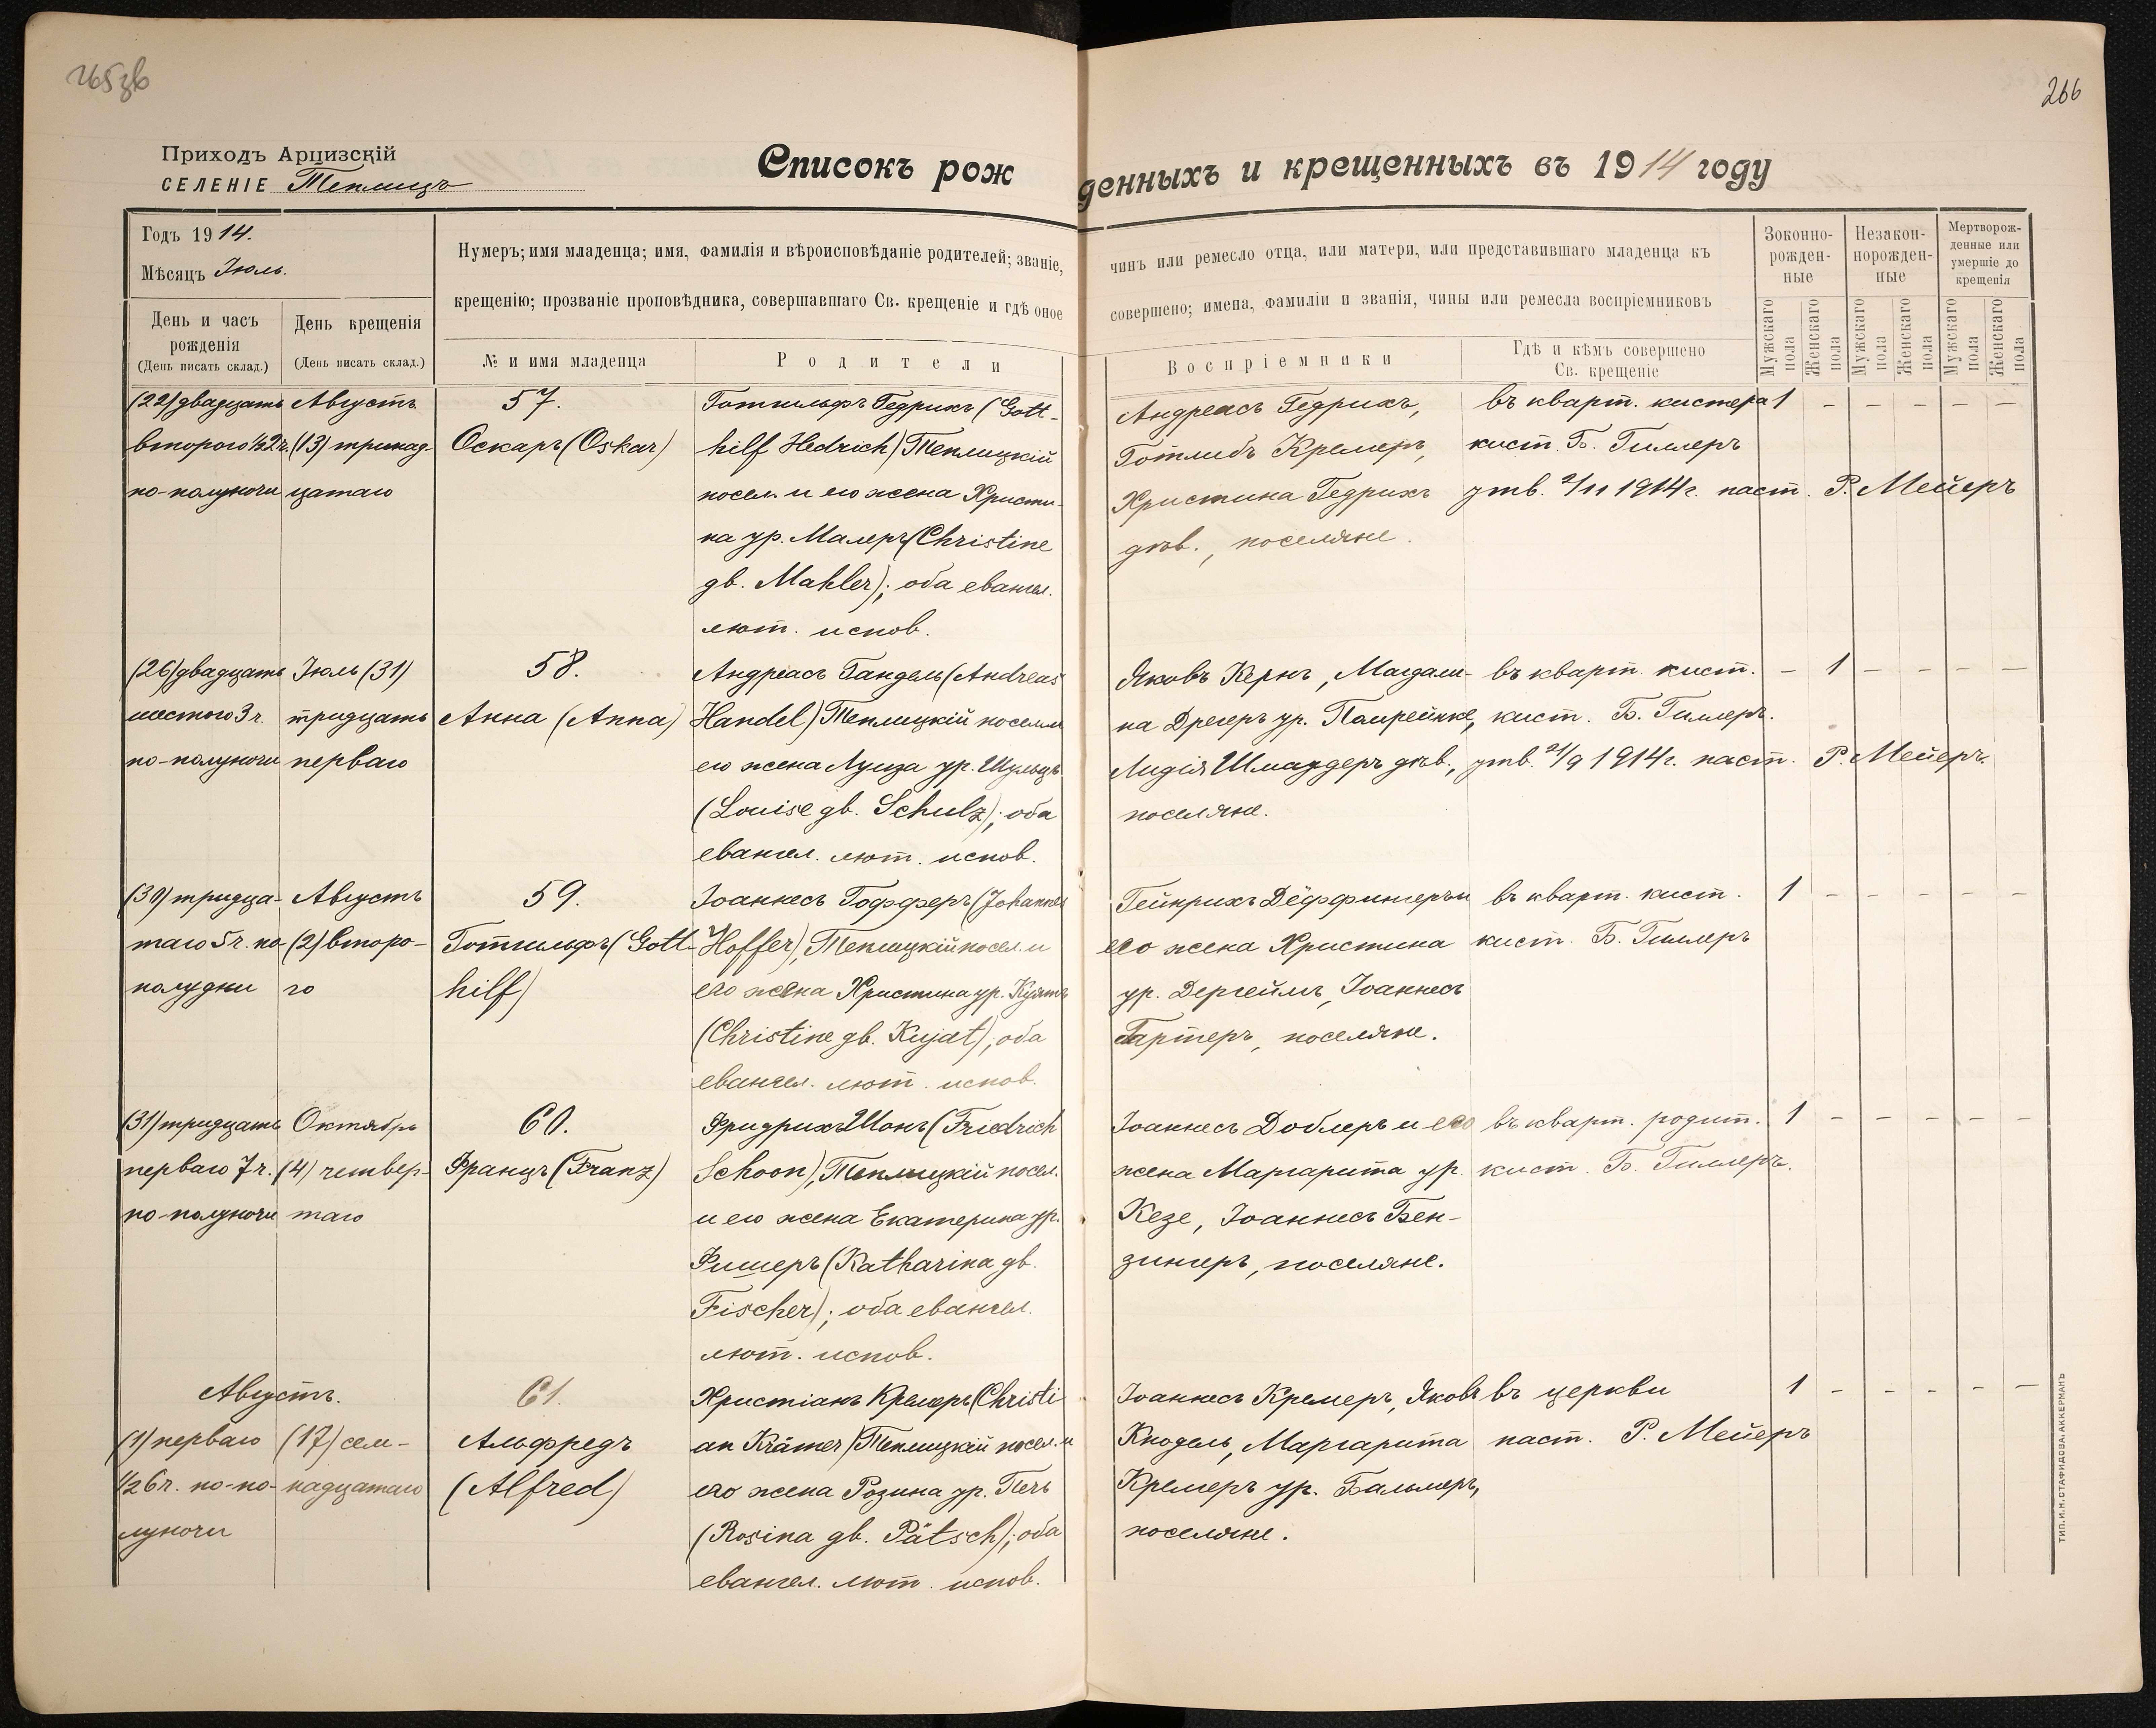 265 зв
266
Приходъ Арцизскій
СЕЛЕНІЕ Теплицъ
Списокъ рож
денныхъ и крещенныхъ въ 1914 году
Годъ 1914.
Мѣсяцъ Іюль.
Нумеръ; имя младенца; имя, фамилія и вѣроисповѣданіе родителей; званіе,
крещенію; прозваніе проповѣдника, совершавшаго Св. крещеніе и гдѣ оное
чинъ или ремесло отца, или матери, или представившаго младенца къ
совершено; имена, фамиліи и званія, чины или ремесла воспріемниковъ
Зоконно-
рожден-
ные
Незакон-
норожден-
ные
Мертворож-
денные или
умершіе до
крещенія
День и часъ
рожденія
(День писать склад.)
День крещенія
(День писать склад.)
№ и имя младенца
Родители
Воспріемники
Гдѣ и кѣмъ совершено
Св. крещеніе
Мужскаго пола
Женскаго пола
Мужскаго пола
Женскаго пола
Мужскаго пола
Женскаго пола
(22) двадцать
второго ½2 ч.
по-полуночи
Августъ
(13) тринад-
цатаго
57.
Оскаръ (Oskar)
Готгильфъ Гедрихъ (Gott-
hilf Hedrich) Теплицкій
посел. и его жена Христи-
на ур. Малеръ (Christine
gb. Mahler); оба евангел.
лют. испов.
Андреасъ Гедрихъ,
Готлибъ Кремеръ,
Христина Гедрихъ
дѣв., поселяне.
въ кварт. кистера
кист. Б. Гиллеръ
утв. 2/11 1914 г. паст. Р. Мейеръ
1 – – – – –
(26) двадцать
шестого 3 ч.
по-полуночи
Іюль (31)
тридцать
перваго
58.
Анна (Anna)
Андреасъ Гандель (Andreas
Handel) Теплицкій поселян
его жена Луиза ур. Шульцъ
(Louise gb. Schulz); оба
евангел. лют. испов.
Яковъ Кернъ, Магдали-
на Дрегеръ ур.
Лидія дѣв.,
поселяне.
въ кварт. кист.
кист. Б. Гиллеръ.
утв. 21/9 1914 г. паст. Р. Мейеръ.
– 1 – – – –
(30) тридца-
таго 5 ч. по-
полудни
Августъ
(2) второ-
го
59.
Готгильфъ (Gott-
hilf)
Іоаннесъ Гоффер (Johannes
Hoffer), Теплицкій посел. и
его жена Христина ур. Куятъ
(Christine gb. Kujat); оба
евангел. лют. испов.
Гейнрихъ Дёффингеръ и
его жена Христина
ур. Дергеймъ, Іоаннесъ
Гартеръ, поселяне.
въ кварт. кист.
кист. Б. Гиллеръ
1 – – – – –
(31) тридцать
перваго 7 ч.
по-полуночи
Октябрь
(4) четвер-
таго
60.
Францъ (Franz)
Фридрихъ Шонъ (Friedrich
Schoon), Теплицкій посел.
и его жена Екатерина ур.
Фишеръ (Katharina gb.
Fischer); оба евангел.
лют. испов.
Іоаннесъ Доблеръ и его
жена Маргарита ур.
Кезе, Іоаннесъ Бен-
зингеръ, поселяне.
въ кварт. родит.
кист. Б. Гиллеръ.
1 – – – – –
Августъ.
(1) перваго
½6 ч. по-по-
луночи
(17) сем-
надцатаго
61.
Альфредъ
(Alfred)
Христіанъ Кремеръ (Christi-
an Krämer) Теплицкій посел. и
его жена Розина ур. Печъ
(Rosina gb. Pätsch); оба
евангел. лют. испов.
Іоаннесъ Кремеръ, Яковъ
Кнодель, Маргарита
Кремеръ ур. Бальмеръ,
поселяне.
въ церкви
паст. Р. Мейеръ
1 – – – – –
ТИП. И. Н. СТАФИДОВА. АККЕРМАНЪ